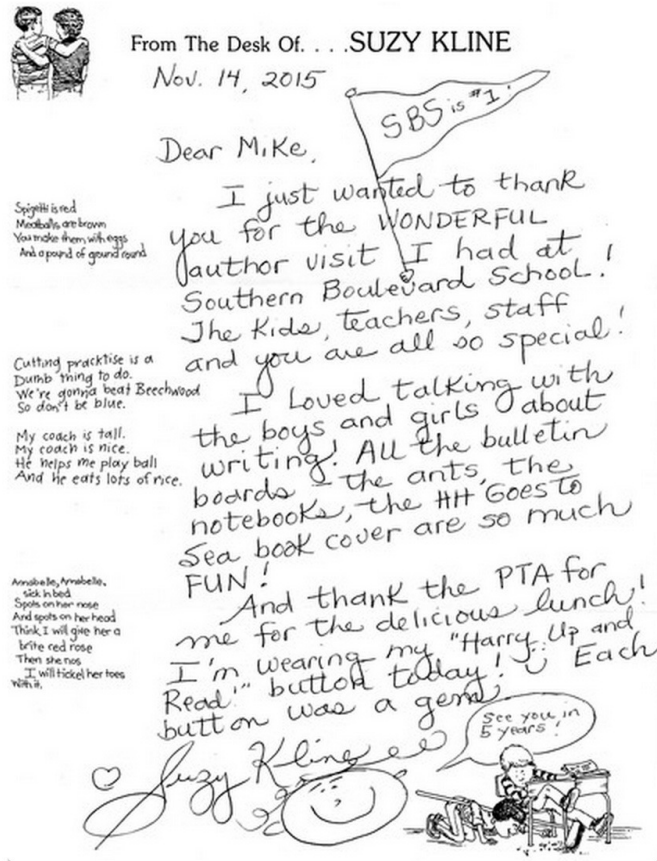 From The Desk Of. . . .SUZY KLINE
Nov. 14, 2015
SBS is #1!
Dear Mike,
I just wanted to thank
you for the WONDERFUL
author visit I had at
Southern Boulevard School!
The Kids, teachers, staff
and you are all so special!
I loved talking with
the boys and girls about
writing! All the bulletin
boards – the ants, the
notebooks, the HH Goes to
Sea book cover are so much
FUN!
And thank the PTA for
me for the delicious lunch!
I'm wearing my "Harry Up and
Read!" button today! Each
button was a gem.
Suzy Kline
See you in
5 years!
Spigetti is red
Meatballs are brown
You make them with eggs
And a pound of ground round
Cutting pracktise is a
Dumb thing to do.
We're gonna beat Beechwood
So don't be blue.
My coach is tall.
My coach is nice.
He helps me play ball
And he eats lots of rice.
Annabelle, Annabelle,
sick in bed
Spots on her nose
And spots on her head
Think I will give her a
brite red rose
Then she nos
I will tickel her toes
With it.